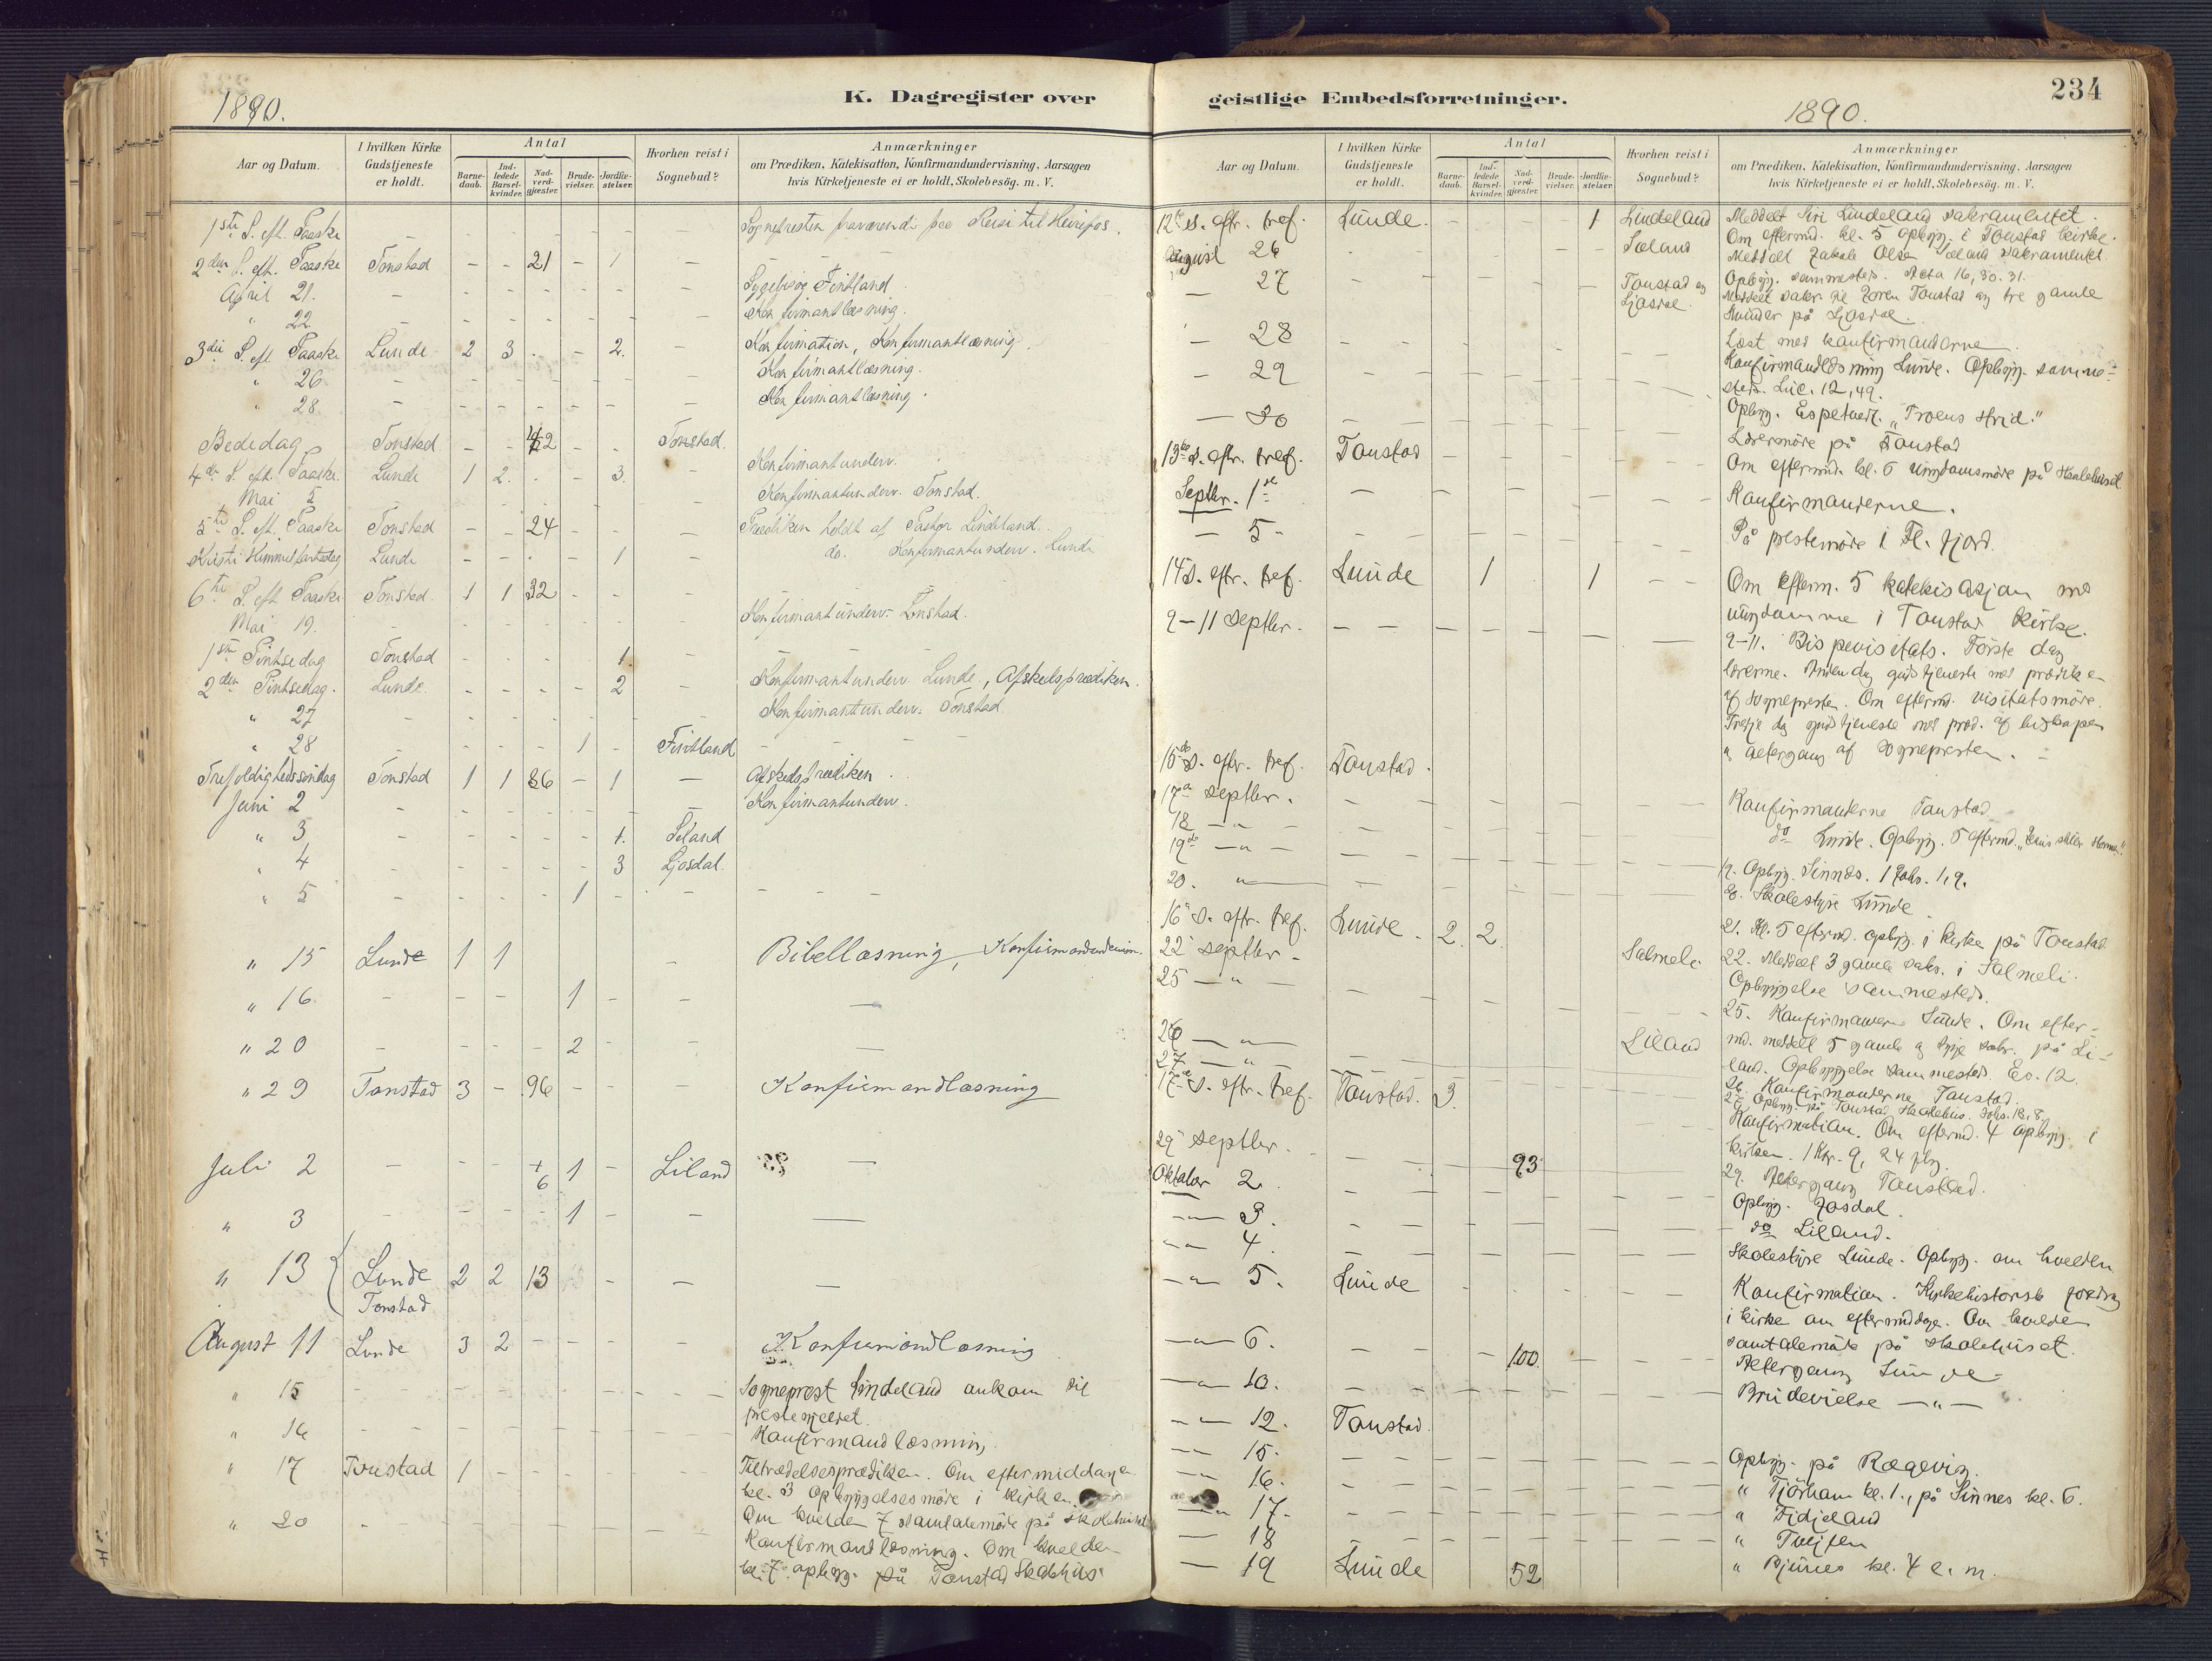 1890.
K. Dagregister over
Aar og Datum.
I hvilken Kirke Gudstjeneste er holdt.
Antal
Barnedaab.
Indledede Barselkvinder.
Nadverdgjæster.
Brudevielser.
Jordfæstelser.
Hvorhen reist i Sognebud?
Anmærkninger
om Prædiken, Katekisation, Konfirmandundervisning, Aarsagen
hvis Kirketjeneste ei er holdt, Skolebesøg. m. V.
1ste S. eft. Paaske - - - - - - - Sognepresten fraværende paa Reise til
2den S. eft. Paaske Tonstad - - 21 - 1 - -
April 21. - Sygebesøg Fintland
" 22. Konfirmantlæsning.
3die S. eft. Paaske Lunde 2 3 - - 2. - Konfirmation, Konfirmantlæsning.
" 26 - Konfirmantlæsning.
" 28. - Konfirmantlæsning.
Bededag Tonstad - - 42 - - Tonstad.
4de S. eft. Paaske Lunde 1 2. - - 3. Konfirmantunderv.
Mai 5 Konfirmantunderv. Tonstad.
5te S. eft. Paaske Tonstad - - 24 - - - Prædiken holdt af Pastor Lindeland.
Kristi Himmelfartsdag Lunde - - - - 1 - do. Konfirmantunderv. Lunde
6te S. eft. Paaske Tonstad. 1 1 32 - - -
Mai 19. - Konfirmantunderv. Tonstad.
1ste Pintsedag Tonstad - - - - 1. -
2den Pintsedag. Lunde. - - - - 2 - Konfirmantunderv. Lunde, Afskedsprædiken.
" 27 - Konfirmantunderv. Tonstad
" 28 - - - - 1 - Fintland -
Trefoldighedssøndag Tonstad 1 1 86 - 1 - Afskedsprædiken.
Juni 2 - Konfirmantunderv.
" 3 - - - - - 1. Liland
" 4 - - - - - 3 Ljosdal.
" 5 - - - - 1 - - -
" 15 Lunde 1 1 - Bibellæsning,
" 16 - - - - 1 - - -
" 20 - - - - 2 - -
" 29 Tonstad 3 - 96 - - - Konfirmandlæsning
Juli 2 - - - 6 1 - Liland -
" 3 - - - - 1 - - -
" 13 Lunde 2 2 13 - - -
Tonstad
August 11 Lunde 3 2 - - - - Konfirmandlæsning
" 15 Sogneprest Lindeland ankom til
prestegjeldet.
" 16 Konfirmandlæsning.
" 17 Tonstad 1 Tiltrædelsesprædiken. Om eftermiddagen
kl. 3 Opbyggelsesmöre i kirken.
" 20 Om kvelden 7 samtalemöte på skolehuset
Konfirmantlæsning. Om kvelden
kl. 7 opbygg. på Tonstad Skolehus.
geistlige Embedsforretninger.
1890.
234
Aar og Datum.
I hvilken Kirke Gudstjeneste er holdt.
Antal
Barnedaab.
Indledede Barselkvinder.
Nadverdgjæster.
Brudevielser.
Jordfæstelser.
Hvorhen reist i Sognebud?
Anmærkninger
om Prædiken, Katekisation, Konfirmandundervisning, Aarsagen
hvis Kirketjeneste ei er holdt, Skolebesøg. m. V.
12te S. eftr. tref. Lunde. - - - - 1 Lindeland Meddelt Siri Lindeland sakramentet.
Om eftermd. kl. 5 opbygg. i Tonstad kirke.
August 26 Meddelt Olsen sakramentet.
Opbygg. sammesteds. Acta 16, 30. 31.
- 27 Tonstad og Ljosdal. Tonstad og tre gamle
kvinder på Ljosdal.
- 28 Læst med konfirmanderne.
- 29 Konfirmandlesning Lunde. Opbygg. samme-
steds. Luc. 12, 49.
- 30 Opbygg. Espetvedt. "Troens strid."
13de S. eftr. tref. Tonstad Lærermöte på Tonstad
Om eftermd. kl. 6 ungdomsmöte på Skolehuset.
Septbr. 1ste - Konfirmanderne.
- 5 - På prestemöte i Fl. fjord.
14 S. eftr. tref. Lunde 1 1 Om efterm. 5 katekisasjon med
ungdommen i Tonstad kirke.
9-11 Septbr. 9-11. Bispevisitats. Förste dag
lærerne. Anden dag gudstjeneste med prædiken
af sognepresten. Om eftermd. visitatsmöte.
Tredje dag gudstjeneste med præd. af biskopen
altergang af sognepresten.
15de S. eftr. tref. Tonstad.
17de Septbr. - Konfirmanterne Tonstad
18 - " - do Lunde. Opbygg. 5 eftermd.
19de - " - 19. Opbygg. Sinnes. 1 Johs. 1, 9.
20. " - 20. Skolestyre Lunde
16de S. eftr. tref. Lunde. 2. 2. 21. Kl. 5 eftermd. opbygg. i kirke på Tonstad
22de Septbr. Salmeli. 22. Meddelt 3 gamle sakr. i Salmeli.
Opbyggelse sammesteds.
25 - " - 25. Konfirmanderne Lunde. Om efter-
26 - " Liland md. meddelt 5 gamle og syge sakr. på Li-
land. Opbyggelse sammesteds. Ev. 12.
27 - " 26. Konfirmanderne Tonstad.
27. Opbygg. på Tonstad Skolehus. Johs. 18, 8.
17de S. eftr. tref. Tonstad. 3. Konfirmation. Om eftermd. 4 opbygg. i
kirken. 1 Kor. 9, 24 flg.
29de Septbr. 93 29. Altergang Tonstad.
Oktober 2. Opbygg. Josdal.
- " - 3. do Liland.
- " - 4. Skolestyre Lunde. Opbygg. om kvelden
- " - 5. Lunde Konfirmation. Kirkehistorisk foredrag
i kirke om eftermiddagen. Om kvelden
samtalemöte på skolehuset.
- " - 6. 100. Altergang Lunde
- " - 10. Brudevielse - " -
- " - 12. Tonstad.
- " - 15. Opbygg. på
- " - 16. " Tjörhom kl. 1., på Sinnes kl. 6.
- " - 17. " Fidjeland
- 18 "
- 19 Lunde 52 " kl. 4 e. m.